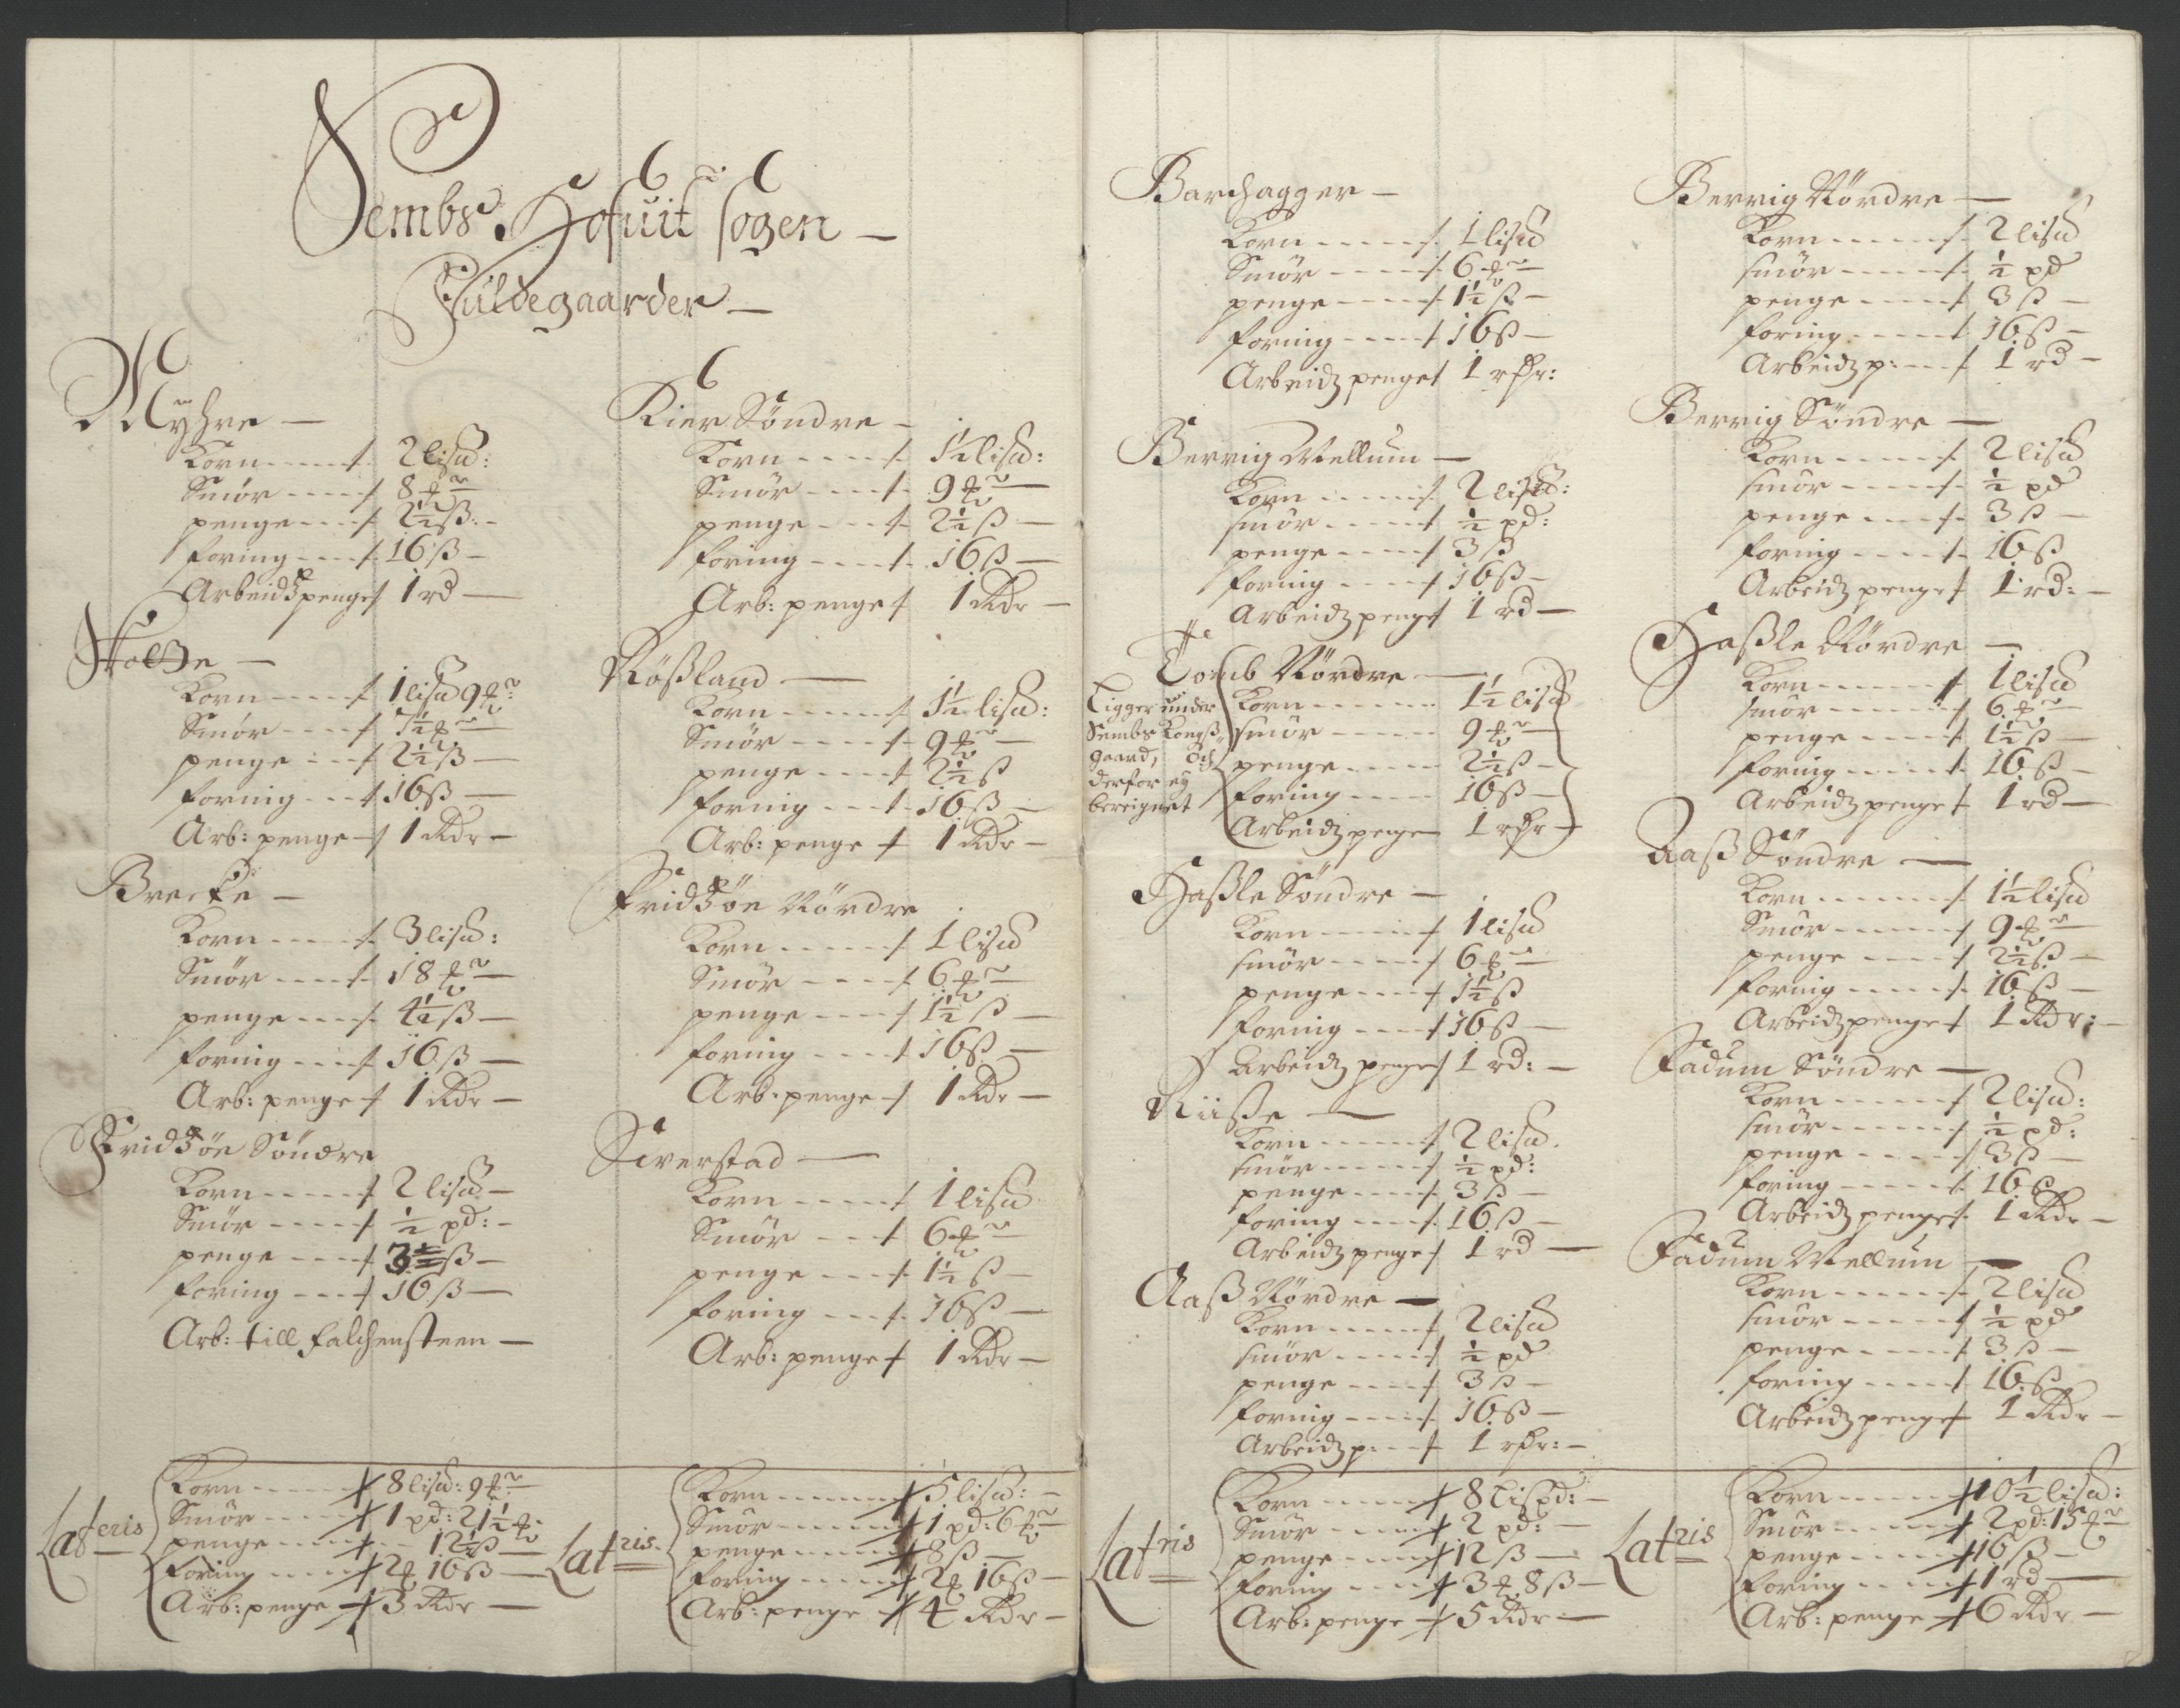 Sembs Hofuit sogen —
Fuldegaarder —
Myhre —
Korn 2 lis℔:
Smör 8 ℔r
penge 2½ ß:
foring 16 ß
Arbeidspenge 1 rd
Holtze —
Korn 1 lis℔ 9 ℔r
Smör 7½ ℔r
penge 2½ ß
foring 16 ß
Arb: penge 1 Rdr
Brecke —
Korn 3 lis℔:
Smör 18 ℔r
penge 4½ ß
foring 16 ß
Arb: penge 1 Rdr
Fridzöe Söndre
Korn 2 lis℔
Smör ½ pd:
penge 3 ß
foring 16 ß
Arb: till falchensteen —
Lateris
Korn 8 lis℔: 9 ℔r
Smör 1 pd: 21½ ℔
penge 12½ ß
foring 2 ℳ 16 ß
Arb: penge 3 Rdr
Kier Söndre —
Korn 1½ lis℔:
Smör 9 ℔r
penge 2½ ß
foring 16 ß
Arb: penge 1 Rdr
Rößland —
Korn 1½ lis℔:
Smör 9 ℔r
penge 2½ ß
foring 16 ß
Arb: penge 1 Rdr
Fridzöe Nördre
Korn 1 lis℔
Smör 6 ℔r
penge 1½ ß
foring 16 ß
Arb: penge 1 Rdr
Severstad —
Korn 1 lis℔
Smör 6 ℔r
penge 1½ ß
foring 16 ß
Arb: penge 1 Rdr
Latris
Korn 5 lis℔:
Smör 1 pd: 6 ℔r
penge 8 ß
foring 2 ℳ 16 ß
Arb: penge 4 Rdr
Barchagger —
Korn 1 lis℔
Smör 6 ℔r
penge 1½ ß
foring 16 ß
Arbeidz penge 1 rdr:
Berrig Mellum —
Korn 2 lis℔:
smör ½ pd:
penge 3 ß
foring 16 ß
Arbeidz penge 1 rd
Tomb Nördre —
Ligger under
Sembs Kongß
gaard, Och
derfor ey
bereignet
Korn 1½ lis℔
smör 9 ℔r
penge 2½ ß
foring 16 ß
Arbeidz penge 1 rdr
Haßle Söndre —
Korn 1 lis℔
smör 6 ℔r
penge 1½ ß
foring 16 ß
Arbeidz penge 1 rd:
Riiße —
Korn 2 lis℔
smör ½ pd:
penge 3 ß
foring 16 ß
Arbeidz penge 1 rd
Aaß Nördre —
Korn 2 lis℔
smör ½ pd
penge 3 ß
foring 16 ß
Arbeidz p: 1 rdr:
Latris
Korn 8 lispd:
Smör 2 pd:
penge 12 ß
foring 3 ℳ 8 ß
Arb: penge 5 Rdr
Berrig Nördre —
Korn 2 lis℔
smör ½ pd
penge 3 ß
foring 16 ß
Arbeidz p: 1 rd
Berrig Söndre —
Korn 2 lis℔
smör ½ pd
penge 3 ß
foring 16 ß
Arbeidz penge 1 rd:
Haßle Nördre —
Korn 1 lis℔
smör 6 ℔r
penge 1½ ß
foring 16 ß
Arbeidz penge 1 rd
Aaß Söndre —
Korn 1½ lis℔
Smör 9 ℔r
penge 2½ ß
foring 16 ß
Arbeidz penge 1 Rdr:
Fadum Söndre —
Korn 2 lis℔:
smör ½ pd:
penge 3 ß
foring 16 ß
Arbeidz penge 1 Rdr
Fadum Mellum —
Korn 2 lis℔
smör ½ pd
penge 3 ß
foring 16 ß
Arbeidz penge 1 Rdr
Latris
Korn 10½ lis℔:
Smör 2 pd: 15 ℔r
penge 16 ß
foring 1 rd
Arb: penge 6 Rdr